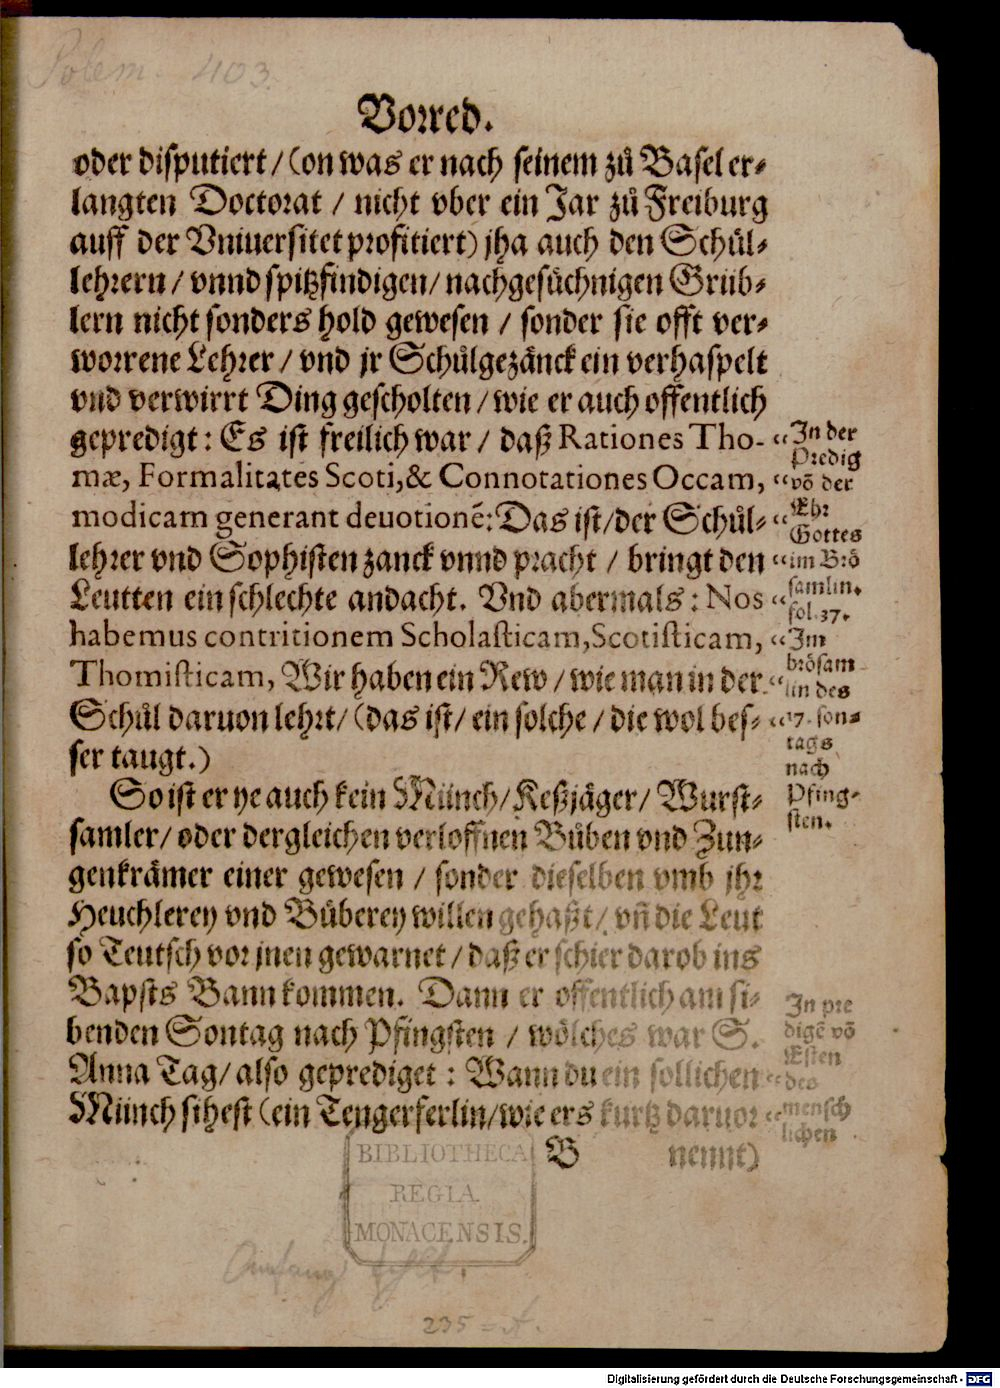 Polem. 403.
Vorred.
oder disputiert/(on was er nach seinem zů Basel er⸗
langten Doctorat / nicht vber ein Jar zů Freiburg
auff der Vniuersitet profitiert) jha auch den Schůl⸗
lehrern/ vnnd spitzfindigen/ nachgesůchnigen Grüb⸗
lern nicht sonders hold gewesen / sonder sie offt ver⸗
worrene Lehrer/ vnd jr Schůlgezänck ein verhaspelt
vnd verwirrt Ding gescholten/ wie er auch offentlich
gepredigt: Es ist freilich war/ daß Rationes Tho-
mæ, Formalitates Scoti,& Connotationes Occam,
modicam generant deuotionē: Das ist/der Schůl⸗
lehrer vnd Sophisten zanck vnnd pracht / bringt den
Leutten ein schlechte andacht. Vnd abermals: Nos
habemus contritionem Scholasticam,Scotisticam,
Thomisticam, Wir haben ein Rew/ wie man in der
Schůl daruon lehrt/(das ist/ ein solche/ die wol bes⸗
ser taugt.)
“In der
Predig
“võ der
“Ehr
Gottes
“im Brö
“samlin.
fol. 37.
“Jm
brösam
“lin des
“17. son⸗
tags
nach
Pfing⸗
sten.
So ist er ye auch kein Münch/ Keßjäger/ Wurst⸗
samler/ oder dergleichen verloffnen Bůben vnd Zun⸗
genkrämer einer gewesen / sonder dieselben vmb jhr
Heuchlerey vnd Bůberey willen gehaßt/ vñ die Leut
so Teutsch vor jnen gewarnet/ daß er schier darob ins
Bapsts Bann kommen. Dann er offentlich am si⸗
benden Sontag nach Pfingsten / wölches war S.
Anna Tag/ also geprediget: Wann du ein sollichen
Münch sihest (ein Tengerferlin/wie ers kurtz daruor
In pre
digē võ
Esten
“des
“mensch
lichen
B nennt)
BIBLIOTHECA
REGIA
MONACENSIS.
Anfang fehlt.
235 = A.
Digitalisierung gefördert durch die Deutsche Forschungsgemeinschaft - DFG